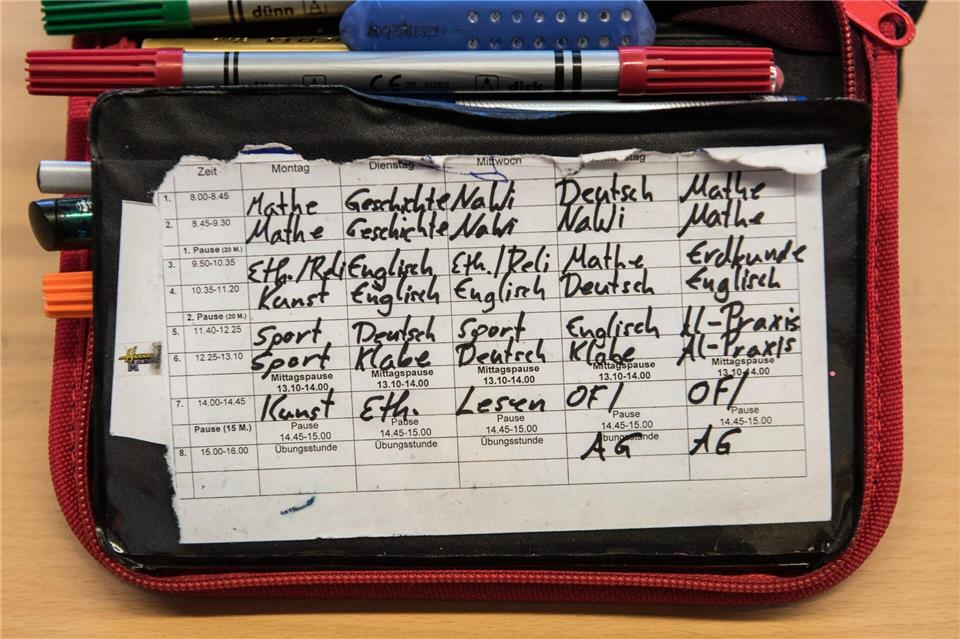 dünn A
dünn A CE 70 dick
Zeit Montag Dienstag Mittwoch
1. 8.00-8.45 Mathe Geschichte NaWi Deutsch Mathe
2. 8.45-9.30 Mathe Geschichte NaWi NaWi Mathe
1. Pause (20 M.)
3. 9.50-10.35 Eth./Reli Englisch Eth./Reli Mathe Erdkunde
4. 10.35-11.20 Kunst Englisch Englisch Deutsch Englisch
2. Pause (20 M.)
5. 11.40-12.25 Sport Deutsch Sport Englisch Al-Praxis
6. 12.25-13.10 Sport Klabe Deutsch Klabe Al-Praxis
Mittagspause Mittagspause Mittagspause Mittagspause Mittagspause
13.10-14.00 13.10-14.00 13.10-14.00 13.10-14.00 13.10-14.00
7. 14.00-14.45 Kunst Eth. Lesen OF/ OF/
Pause (15 M.) Pause Pause Pause Pause Pause
14.45-15.00 14.45-15.00 14.45-15.00 14.45-15.00 14.45-15.00
8. 15.00-16.00 Übungsstunde Übungsstunde Übungsstunde AG AG
HANNAH